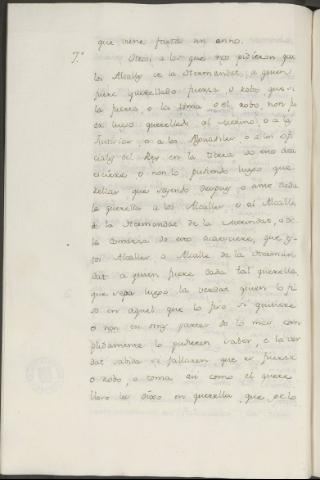 que viene fasta un anno.
7.º Otrosi a lo que nos pidieron que
los Alcalles de la Hermandat, a quien
fuere querellado fuerza, o robo, que si
la fuerza, o la toma, o el robo, non fu
ere luego querellado al Merino, o a la
Justicia, o a los Alcalles, o a los ofi
ciales del Rey en la tierra do eso aca
eciere, o non lo pudiendo luego que
rellar que seyendo despues, o ante dada
la querella a los Alcalles, o al Alcalle
de la Hermandat de la Merindat, o de
la comarca do esto acaesciere, que es
tos Alcalles, o Alcalle de la Herman
dat a quien fuere dada tal querella,
que sepa luego la verdat quien lo fi
so en aquel que lo fiso si quisiere
o non en otras partes do lo mejor com
plidamente lo pudieren saber, e la ver
dat sabida si fallaren que es fuerza
o robo, o toma asi como el quere
lloso les dixo en querella, que de lo